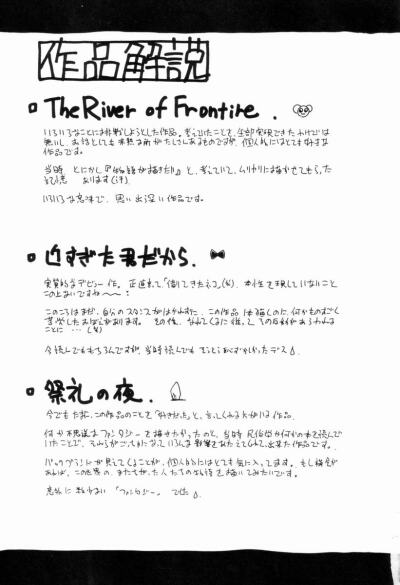 作品解説
The River of Frontire.
いろいろなことに挑戦しようとした作品。考えていたことを全部実現できたわけでは
無いし、お話としても未熟な所がたくさんあるものですが、個人的にはとても好きな
作品です。
当時 とにかく『物語が描きたい』と、考えていて、ムリヤリに描かせてもらった
記憶 あります(汗)
いろいろな意味で、思い出深い作品です。
近すぎた君だから.
実質的なデビュー作。正直まて「借りてきたネコ」(笑) 本性を現していないこと
この上ないですね〜〜:
このころはまだ、自分のスタンスがつかめず、この作品は描くのに、何かものすごく
苦労したおぼえがあります。その後、なれてくるに従って その反動があらわれる
ことに…(笑)
今読んでももちろんですが、当時読んでもそうとうはずかしかったデス
祭礼の夜.
今でもたまに、この作品のことを「好きだった」と、言ってくれる人がいる作品。
何か不思議なファンタジーを描きたかったのと、当時 民俗学か何かの本を読んで
いたことで、それらがごっちゃになって いろんな影響をあたえてくれて出来た作品です。
バックグランドが見えてくるところが、個人的にはとても気に入ってます。もし機会が
あれば、この世界の、またちがった人たちのお話を描いてみたいです。
意外に数少ない「ファンタジー」です